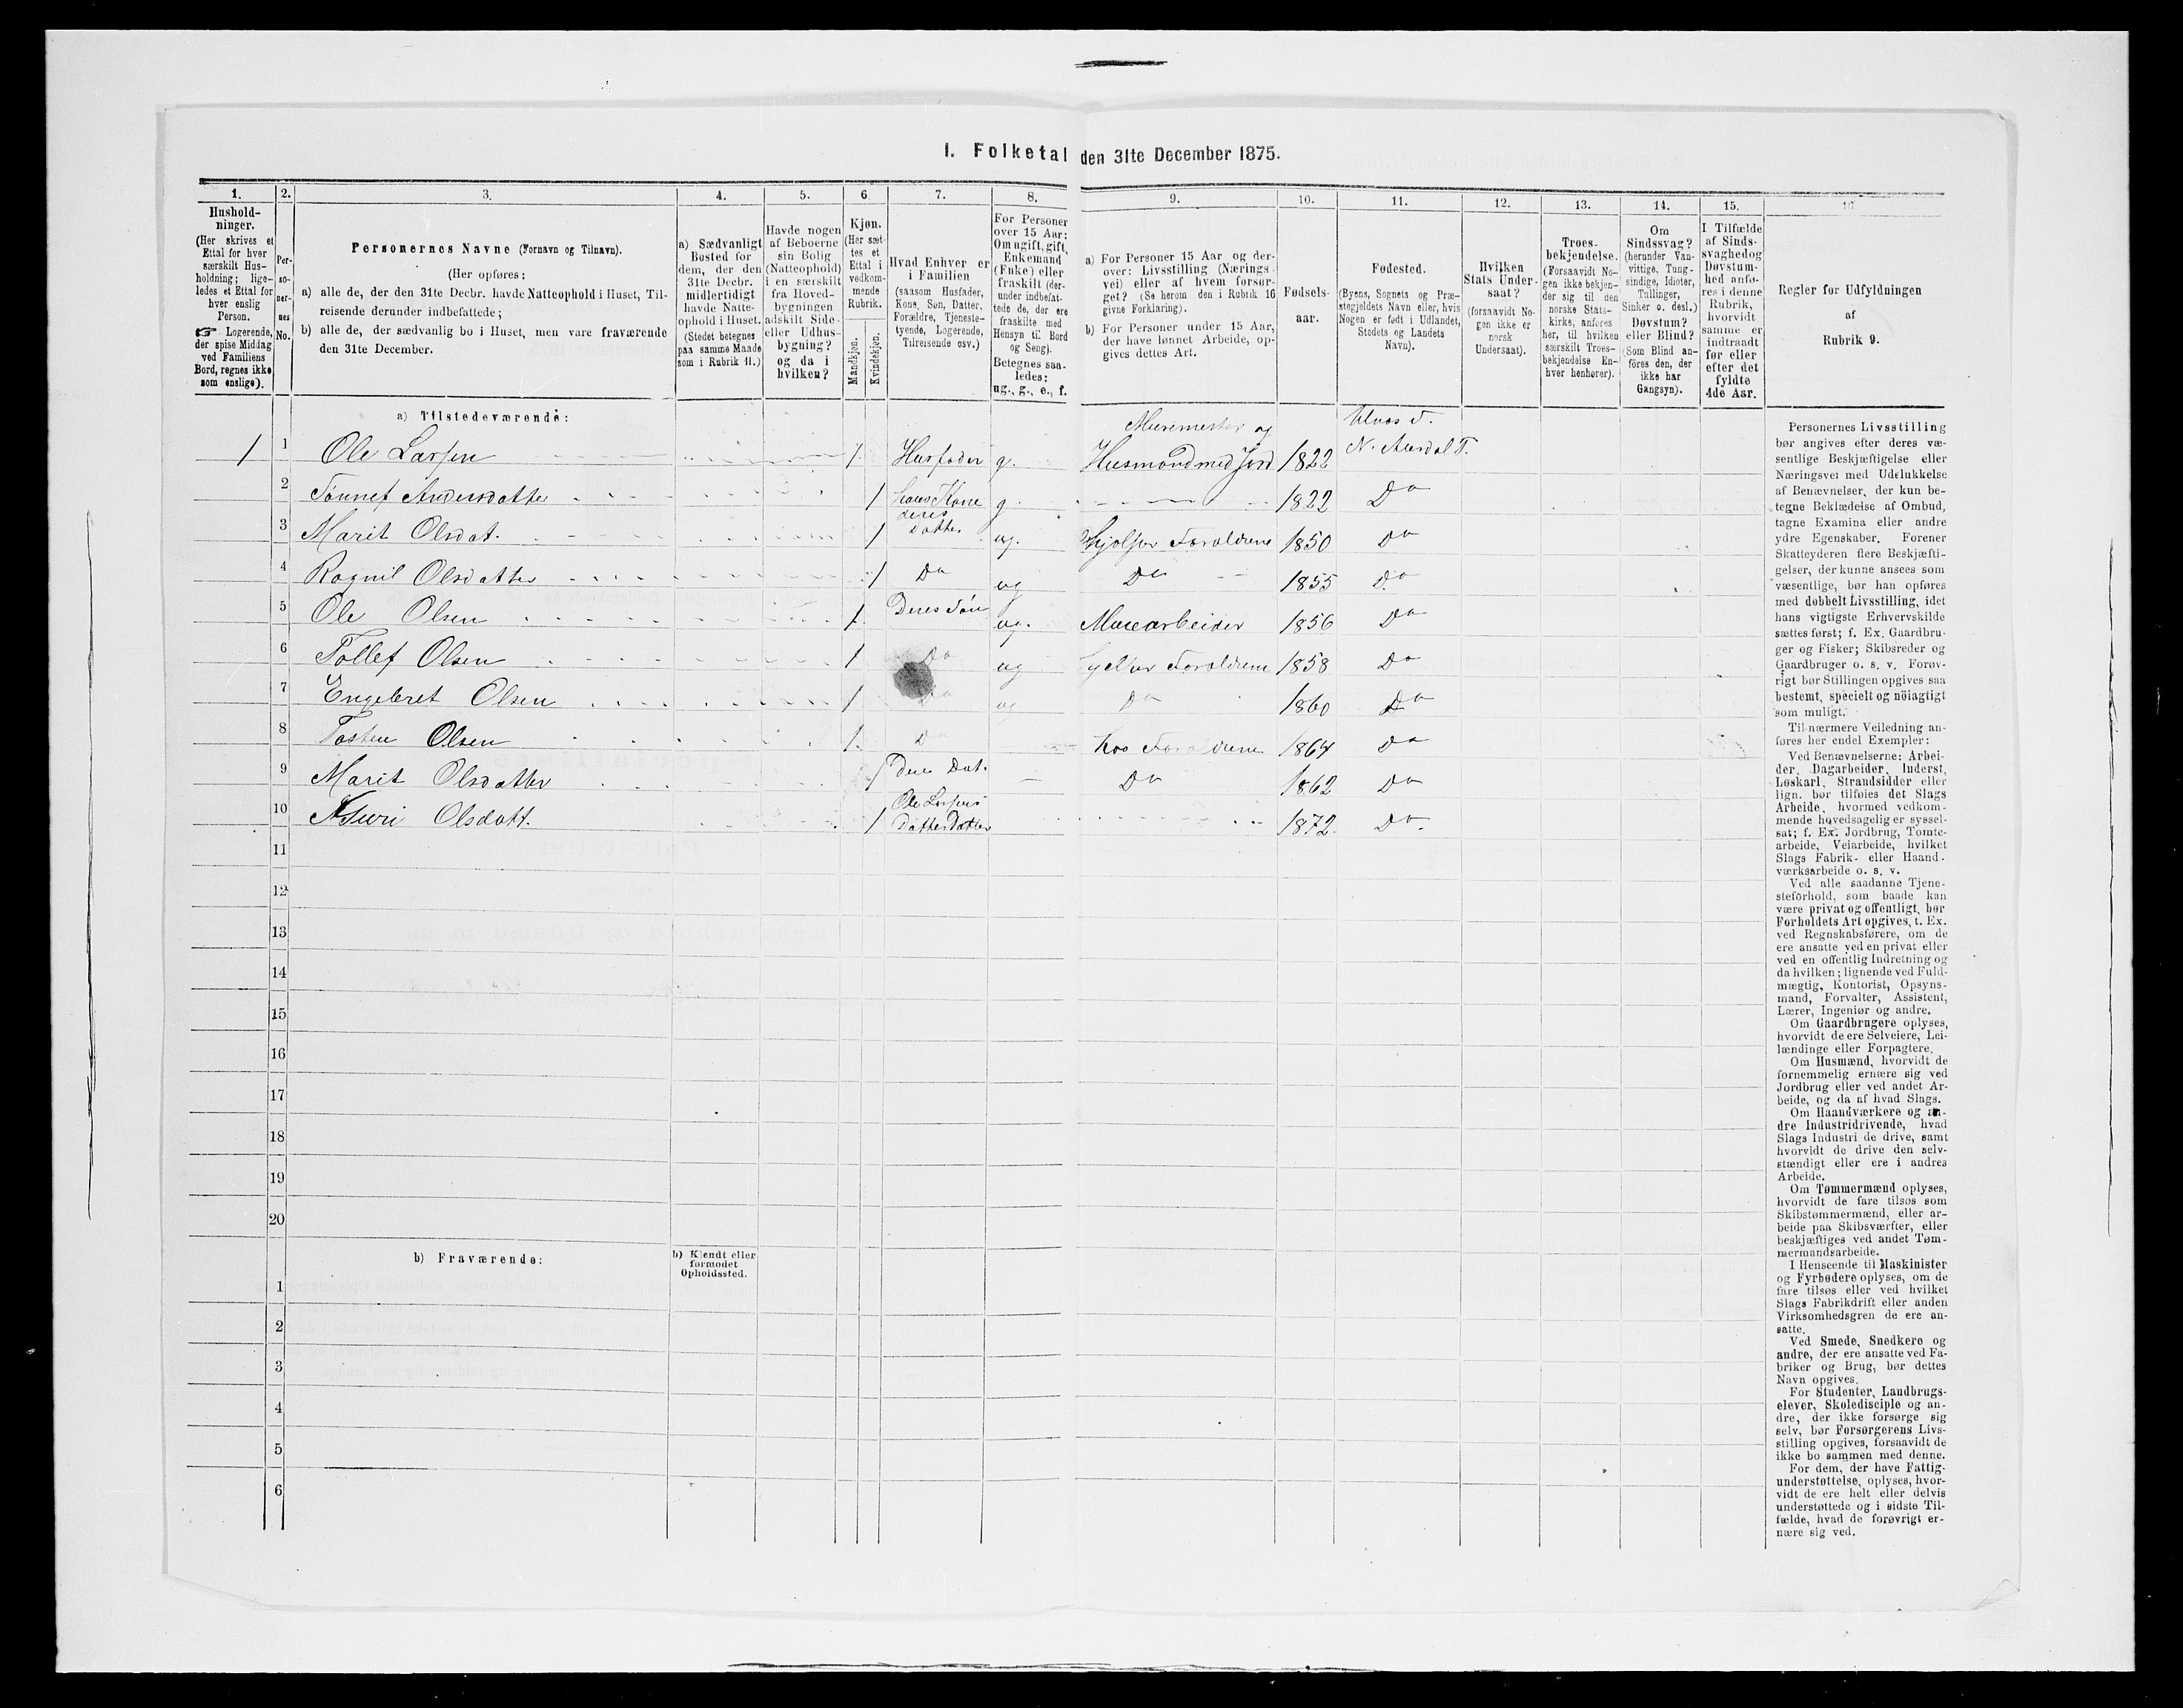 I. Folketal den 31te December 1875.
1.
Hushold-
ninger.
(Her skrives et
Ettal for hver
særskilt Hus-
holdning; lige-
ledes et Ettal for
hver enslig
Person.
☞ Logerende,
der spise Middag
ved Familiens
Bord, regnes ikke
som enslige).
2.
Per-
so-
ner-
nes
No.
3.
Personernes Navne (Fornavn og Tilnavn).
(Her opføres:
a) alle de, der den 31te Decbr. havde Natteophold i Huset, Til-
reisende derunder indbefattede;
b) alle de, der sædvanlig bo i Huset, men vare fraværende
den 31te December.
4.
a) Sædvanligt
Bosted for
dem, der den
31te Decbr.
midlertidigt
havde Natte-
ophold i Huset.
(Stedet betegnes
paa samme Maade
som i Rubrik 11.)
5.
Havde nogen
af Beboerne
sin Bolig
(Natteophold)
i en særskilt
fra Hoved-
bygningen
adskilt Side-
eller Udhus-
bygning?
og da i
hvilken?
6.
Kjøn.
(Her sæt-
tes et
Ettal i
vedkom-
mende
Rubrik.
Mandkjøn.
Kvindekjøn.
7.
Hvad Enhver er
i Familien
(saasom Husfader,
Kone, Søn, Datter,
Forældre, Tjeneste-
tyende, Logerende,
Tilreisende osv.)
8.
For Personer
over 15 Aar:
Om ugift, gift,
Enkemand
(Enke) eller
fraskilt (der-
under indbefat-
tede de, der ere
fraskilte med
Hensyn til Bord
og Seng).
Betegnes saa-
ledes:
ug., g., e., f.
9.
a) For Personer 15 Aar og der-
over: Livsstilling (Nærings-
vei) eller af hvem forsør-
get? (Se herom den i Rubrik 16
givne Forklaring).
b) For Personer under 15 Aar,
der have lønnet Arbeide, op-
gives dettes Art.
10.
Fødsels-
aar.
11.
Fødested.
(Byens, Sognets og Præ-
stegjeldets Navn eller, hvis
Nogen er født i Udlandet,
Stedets og Landets
Navn).
12.
Hvilken
Stats Under-
saat?
(forsaavidt No-
gen ikke er
norsk
Undersaat).
13.
Troes-
bekjendelse.
(Forsaavidt No-
gen ikke bekjen-
der sig til den
norske Stats-
kirke, anføres
her, til hvilken
særskilt Troes-
bekjendelse En-
hver henhører).
14.
Om
Sindssvag?
(herunder Van-
vittige, Tung-
sindige, Idioter,
Tullinger,
Sinker o. desl.)
Døvstum?
eller Blind?
(Som Blind an-
føres den, der
ikke har
Gangsyn).
15.
I Tilfælde
af Sinds-
svaghed og
Døvstum-
hed anfø-
res i denne
Rubrik,
hvorvidt
samme er
indtraadt
før eller
efter det
fyldte
4de Aar.
16
Regler for Udfyldningen
af
Rubrik 9.
a) Tilstedeværende:
1 1 Ole Larsen 1. Husfader g. Muremester og Husmand med Jord 1822 Ulnæs S. N. Aurdal P.
2 Andersdatter 1 hans Kone g 1822 Do
3 Marit Olsdat. 1 deres Datter ug. Hjelper Forældrene 1850 Do
4 Ragnil Olsdatter 1 Do ug Do 1855 Do
5 Ole Olsen 1. Deres Søn ug. Murarbeider 1856 Do
6 Tollef Olsen 1 Do ug Forældrene 1858 Do
7 Engebret Olsen 1 Do ug Do 1860 Do
8 Tosten Olsen 1. Do Hos Forældrene 1864 Do
9 Marit Olsdatter 1 Deres Dat. Do 1862 Do
10 Olsdatt. 1 Ole Larsens DatterDatter 1872. Do.
11
12
13
14
15
16
17
18
19
20
b) Fraværende:
b) Kjendt eller
formodet
Opholdssted.
1
2
3
4
5
6
Personernes Livsstilling
bør angives efter deres væ-
sentlige Beskjæftigelse eller
Næringsvei med Udelukkelse
af Benævnelser, der kun be-
tegne Beklædelse af Ombud,
tagne Examina eller andre
ydre Egenskaber. Forener
Skatteyderen flere Beskjæfti-
gelser, der kunne ansees som
væsentlige, bør han opføres
med dobbelt Livsstilling, idet
hans vigtigste Erhvervskilde
sættes først; f. Ex. Gaardbru-
ger og Fisker; Skibsreder og
Gaardbruger o. s. v. Forøv-
rigt bør Stillingen opgives saa
bestemt, specielt og nøiagtigt
som muligt.
Til nærmere Veiledning an-
føres her endel Exempler:
Ved Benævnelserne: Arbei-
der, Dagarbeider, Inderst,
Løskarl, Strandsidder eller
lign. bør tilføies det Slags
Arbeide, hvormed vedkom-
mende hovedsagelig er syssel-
sat; f. Ex. Jordbrug, Tomte-
arbeide, Veiarbeide, hvilket
Slags Fabrik- eller Haand-
værksarbeide o. s. v.
Ved alle saadanne Tjene-
steforhold, som baade kan
være privat og offentligt, bør
Forholdets Art opgives, t. Ex.
ved Regnskabsførere, om de
ere ansatte ved en privat eller
ved en offentlig Indretning og
da hvilken; lignende ved Fuld-
mægtig, Kontorist, Opsyns-
mand, Forvalter, Assistent,
Lærer, Ingeniør og andre.
Om Gaardbrugere oplyses,
hvorvidt de ere Selveiere, Lei-
lændinge eller Forpagtere.
Om Husmænd, hvorvidt de
fornemmelig ernære sig ved
Jordbrug eller ved andet Ar-
beide, og da af hvad Slags.
Om Haandværkere og an-
dre Industridrivende, hvad
Slags Industri de drive, samt
hvorvidt de drive den selv-
stændigt eller ere i andres
Arbeide.
Om Tømmermænd oplyses,
hvorvidt de fare tilsøs som
Skibstømmermænd, eller ar-
beide paa Skibsværfter, eller
beskjæftiges ved andet Tøm-
mermandsarbeide.
I Henseende til Maskinister
og Fyrbødere oplyses, om de
fare tilsøs eller ved hvilket
Slags Fabrikdrift eller anden
Virksomhedsgren de ere an-
satte.
Ved Smede, Snedkere og
andre, der ere ansatte ved Fa-
briker og Brug, bør dettes
Navn opgives.
For Studenter, Landbrugs-
elever, Skoledisciple og an-
dre, der ikke forsørge sig
selv, bør Forsørgerens Livs-
stilling opgives, forsaavidt de
ikke bo sammen med denne.
For dem, der have Fattig-
understøttelse, oplyses, hvor-
vidt de ere helt eller delvis
understøttede og i sidste Til-
fælde, hvad de forøvrigt er-
nære sig ved.